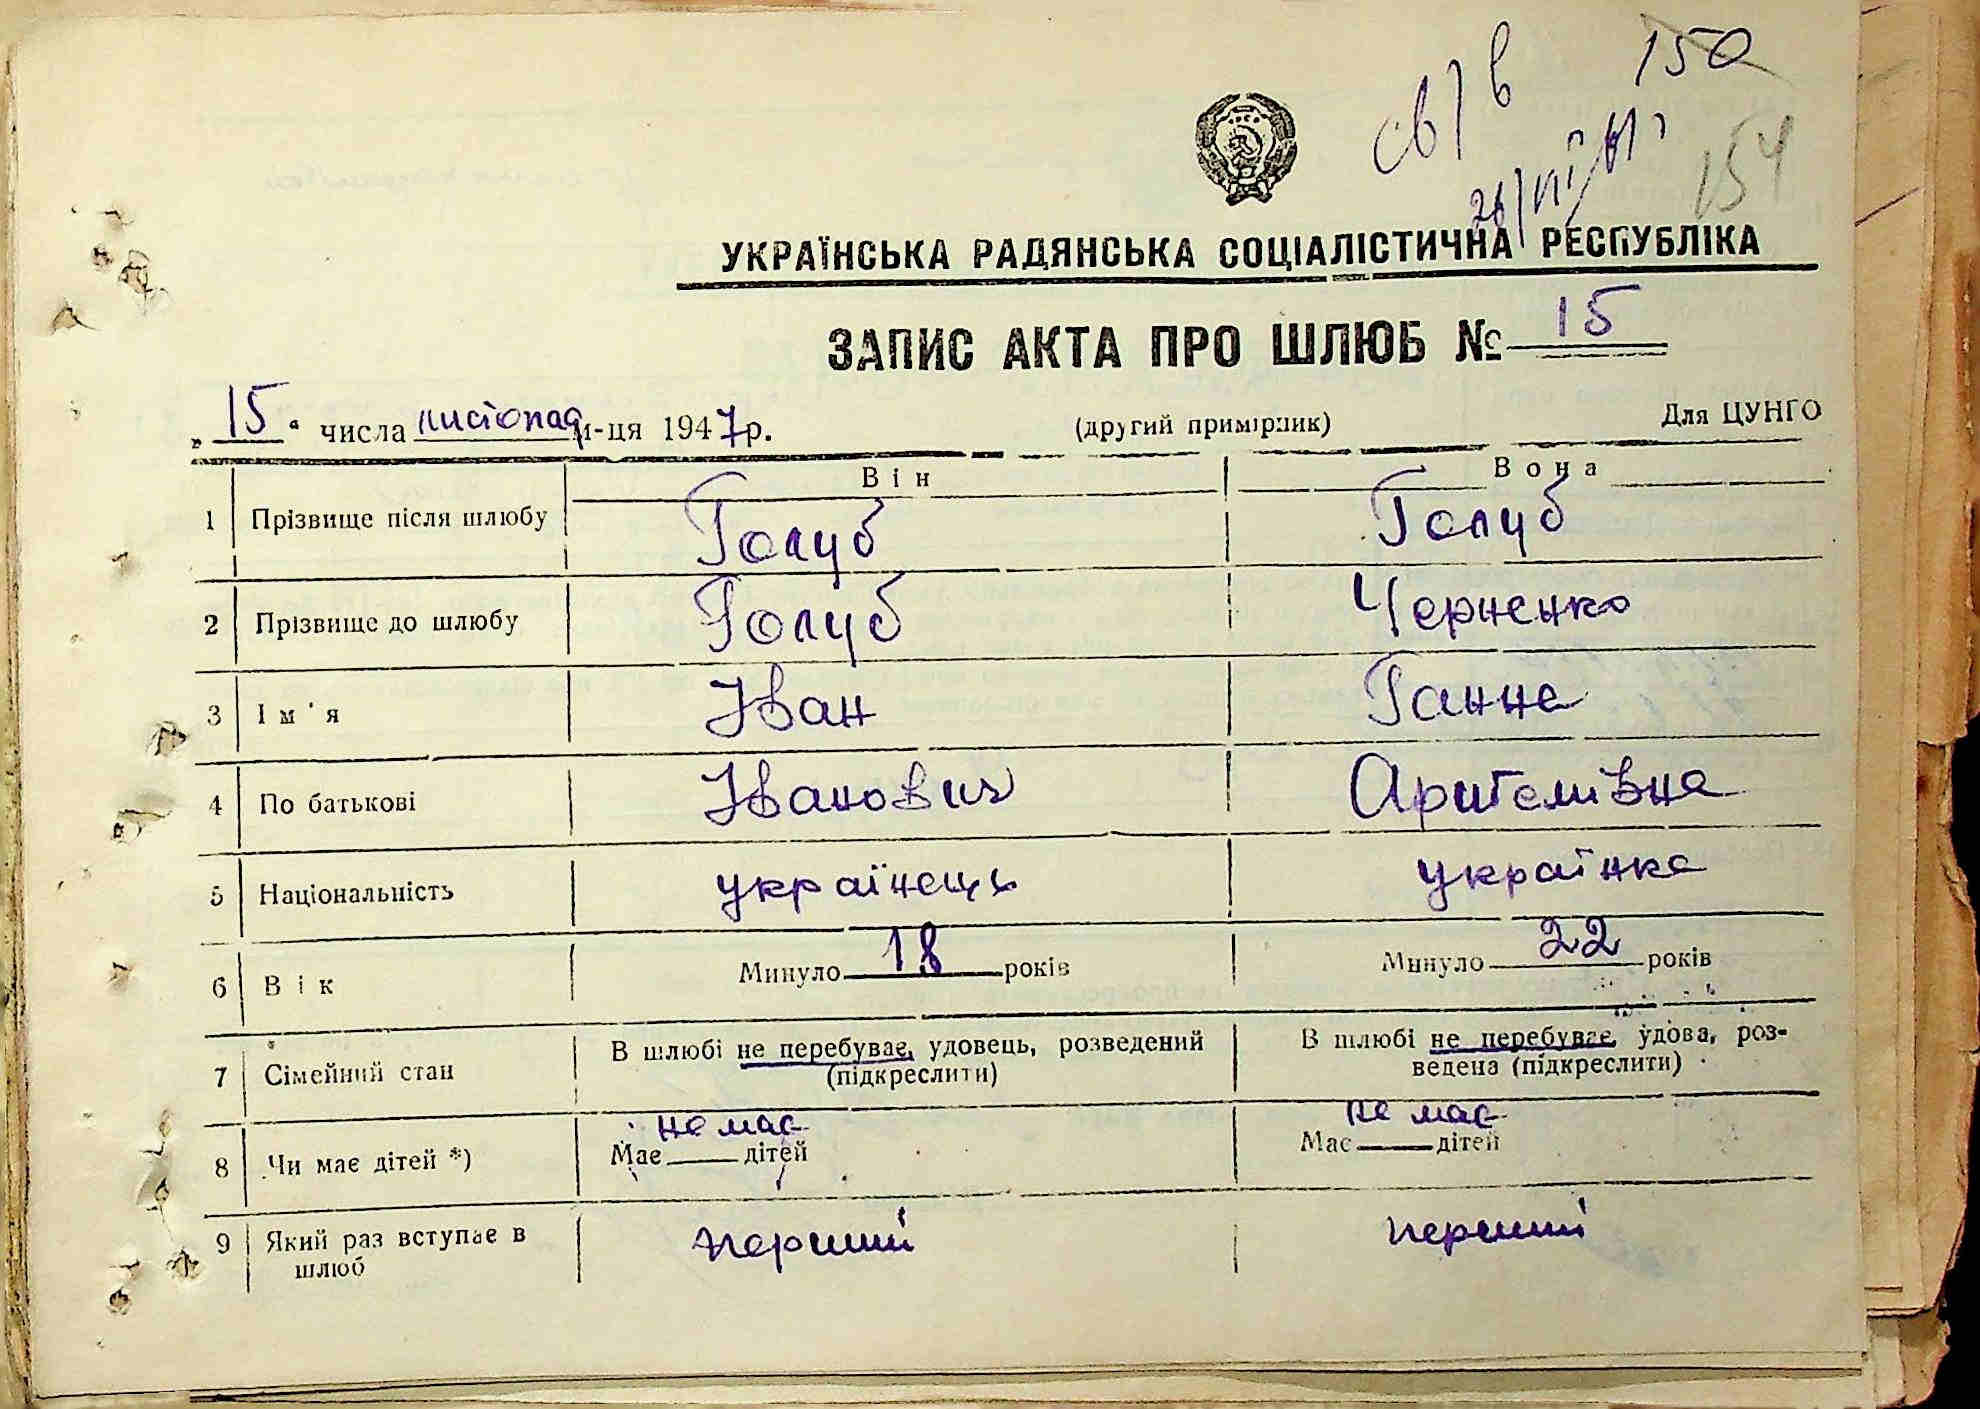 150
св/в
154
УКРАЇНСЬКА РАДЯНСЬКА СОЦІАЛІСТИЧНА РЕСПУБЛІКА
ЗАПИС АКТА ПРО ШЛЮБ № 15
„ 15 “ числа листопад м-ця 1947 р. (другий примірник) Для ЦУНГО
Він Вона
1 Прізвище після шлюбу Голуб Голуб
2 Прізвище до шлюбу Голуб Черненко
3 Ім'я Іван Ганна
4 По батькові Іванович
5 Національність українець українка
6 Вік Минуло 18 років Минуло 22 років
7 Сімейний стан В шлюбі не перебуває, удовець, розведений (підкреслити) В шлюбі не перебуває, удова, роз-
ведена (підкреслити)
не має не має
8 Чи має дітей *) Має дітей Має дітей
9 Який раз вступає в перший перший
шлюб